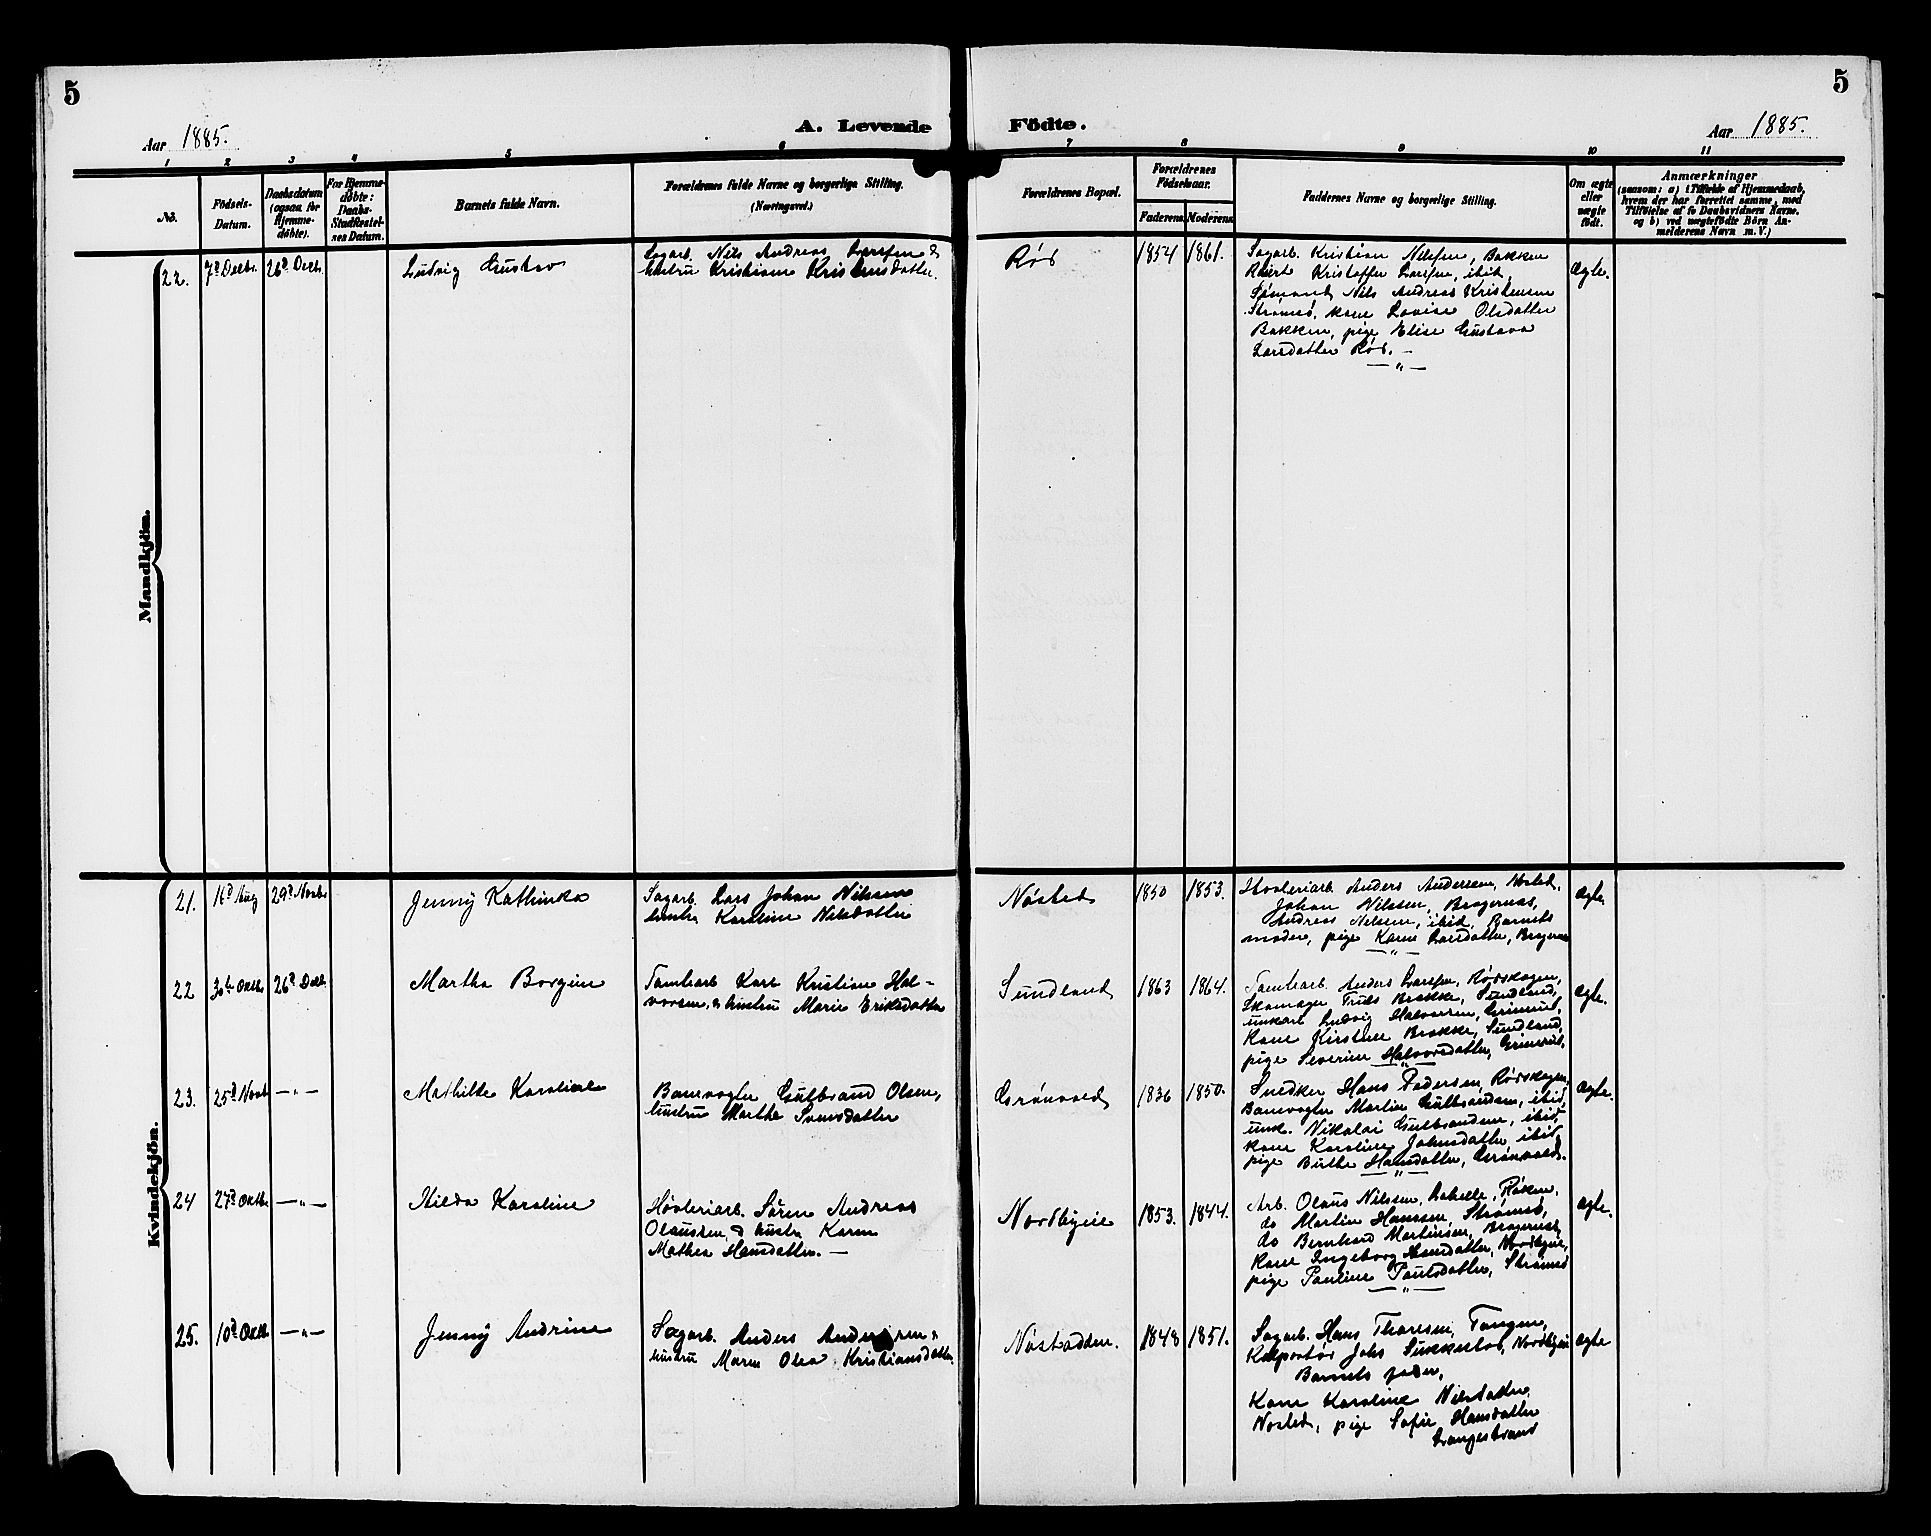 5
5
Aar 1885.
A. Levende Födte.
Aar 1885.
1 2 3 4 5 6 7 8 9 10 11
No.
Födsels-Datum.
Daabsdatum (ogsaa for Hjemme-döbte).
For Hjemme-döbte: Daabs-Stadfæstel-ses Datum.
Barnets fulde Navn.
Forældrenes fulde Navne og borgerlige Stilling. (Næringsvei.)
Forældrenes Bopæl.
Forældrenes Födselsaar.
Faderens. Moderens.
Faddernes Navne og borgerlige Stilling.
Om ægte eller uægte födt.
Anmærkninger
(saasom: a) i Tilfælde af Hjemmedaab,
hvem der har forrettet samme, med
Tilföielse af to Daabsvidners Navne,
og b) ved uægtefödte Börn An-
melderens Navn m. V.)
Mandkjön.
22. 7d Decbr. 26d Decbr. Ludvig Gustav
Sagarb. Nils Andreas Larsen &
hustru Kristiane Kristensdatter.
Rød 1854 1861.
Sagarb. Kristian Nilssen, Bakken
Kristoffer Larsen, ibid,
Sømand Nils Andreas Kristensen
Strømsø, kone Lovise Olsdatter
Bakken, pige Elise Gustava
Larsdatter Rød. —
— „ —
Ægte.
Kvindekjön.
21. 16d Aug 29d Novbr Jenny Kathinka
Sagarb. Lars Johan Nilssen
hustru Karoline Nilsdatter
Nøsted 1850 1853.
Høvleriarb. Anders Andersen, Nøsted,
Johan Nilssen, Bragernæs,
Andreas Nilsen, ibid, Barnets
moder, pige Karen Larsdatter, Bragernæs
— „ —
ægte.
22 30te Oktb. 26d Decb. Martha Borgine
Tomtearb. Karl Kristian Hal-
vorsen, & hustru Marie Eriksdatter
Sundland 1863 1864.
Tomtearb. Anders Larsen, Rødskogen,
Skomager Truls Brække, Sundland,
unkarl Ludvig Halvorsen, Grimsrud,
Kone Kirstine Brække, Sundland,
pige Severine Halvorsdatter, Grimsrud.
ægte.
23. 25d Novb — „ — Mathilde Karoline
Banevogter Gulbrand Olsen,
hustru Marthe Svensdatter
Grønvold 1836 1850.
Snedker Hans Pedersen, Rødskogen,
Banevogter Martin Gulbrandsen, ibid,
unk. Nikolai Gulbrandsen, ibid,
kone Karoline Johnsdatter, ibid,
pige Birthe Hansdatter, Grønvold.
— „ —
ægte.
24 27d Oktbr — „ — Hilda Karoline
Høvleriarb. Søren Andreas
Olaussen & hustru Karen
Mathea Hansdatter. —
Nordbyeie 1853. 1844.
Arb. Olaus Nilssen, Røken,
do Martin Hanssen, Strømsø,
do Bernhard Martinsen, Bragernæs,
kone Ingeborg Hansdatter, Nordbyeie,
pige Pauline Paulsdatter, Strømsø
— „ —
ægte.
25. 10d Oktb — „ — Jenny Andrine
Sagarb. Anders Andersen &
hustru Maren Olea Kristiansdatter.
Nøstodden. 1848 1851.
Sagarb. Hans Thoresen, Tangen,
Kolportør Johs Sukkestad, Nordbyeie
Barnets fader,
Kone Karoline Nilsdatter
Nøsted, pige Sofie Hansdatter
Svangestrand
ægte